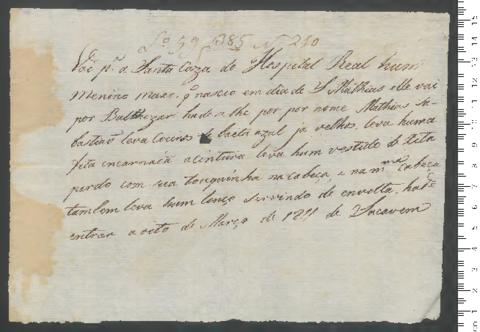 Lº 59 f 285 N 210
Vai pª a Santa Caza do Hospital Real hum
Menino q nascio em dia de S Mathias elle vai
por Balthezar hade a lhe por por nome Mathias Se
bastiaõ leva de baeta azul ja velhos, leva huma
fita incarnada a cintura leva hum vestido de xita
pardo com sua touquinha na cabeça, e na mma Cabeça
tambem leva hum lenço servindo de envolta, hade
entrar a oito de Março de 1811 de Sacavem